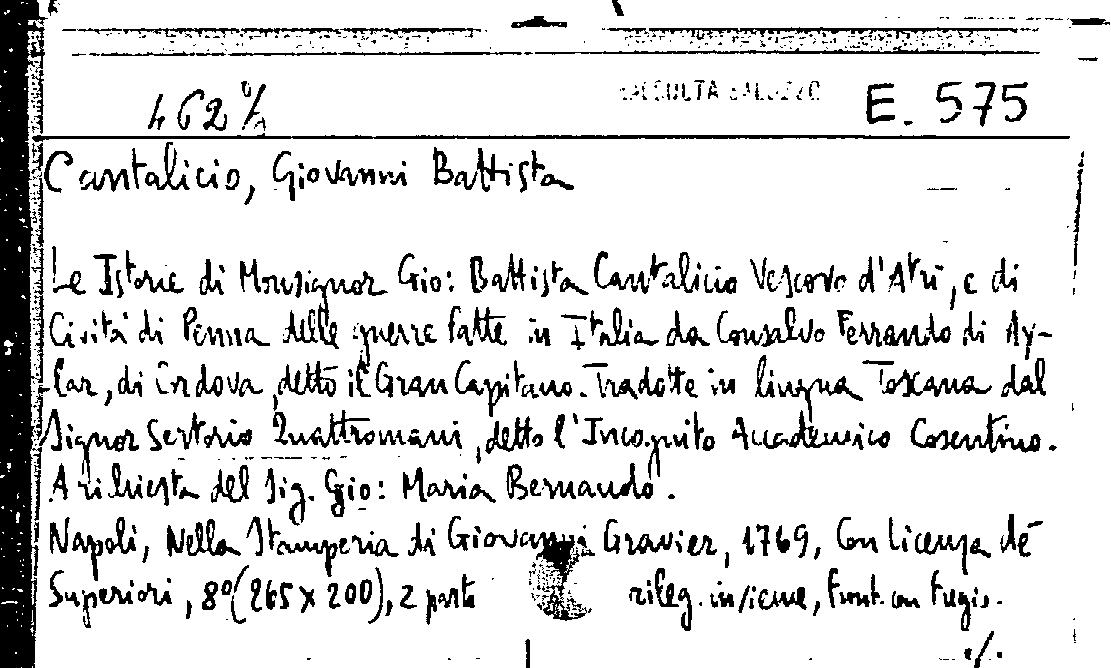 462 % RACCOLTA E. 575
Cantalicio, Giovanni Battista
Le Istorie di Monsignor Gio: Battista Cantalicio Vescovo d'Atri, e di
Cività di Penna delle guerre fatte in Italia da Consalvo Ferrando di Ay-
-lar, di Cordova, detto il Gran Capitano. Tradotte in lingua Toscana dal
Signor Sertorio Quattromani, detto l'Incognito Accademico Cosentino.
A richiesta del Sig. Gio: Maria Bernaudo.
Napoli, Nella Stamperia di Giovanni Gravier, 1769, Con licenza de
Superiori, 8° (265 x 200), 2 parti rileg. insieme, front. con fregio.
./.